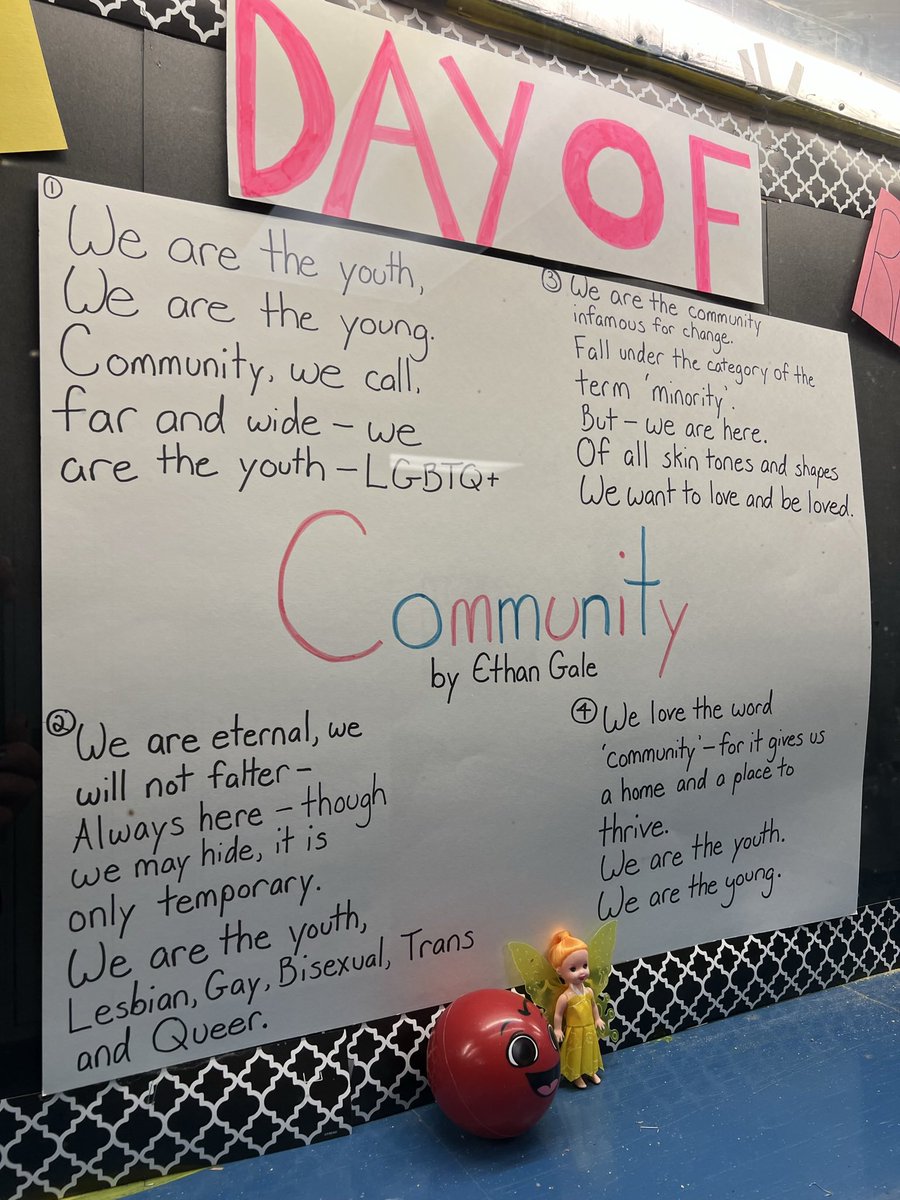 DAY OF
①
We are the youth,
We are the young.
Community, we call,
far and wide – we
are the youth – LGBTQ+
③ We are the community
infamous for change.
Fall under the category of the
term 'minority'.
But – we are here.
Of all skin tones and shapes
We want to love and be loved.
Community
by Ethan Gale
② We are eternal, we
will not falter –
Always here – though
we may hide, it is
only temporary.
We are the youth,
Lesbian, Gay, Bisexual, Trans
and Queer.
④ We love the word
'community' – for it gives us
a home and a place to
thrive.
We are the youth.
We are the young.